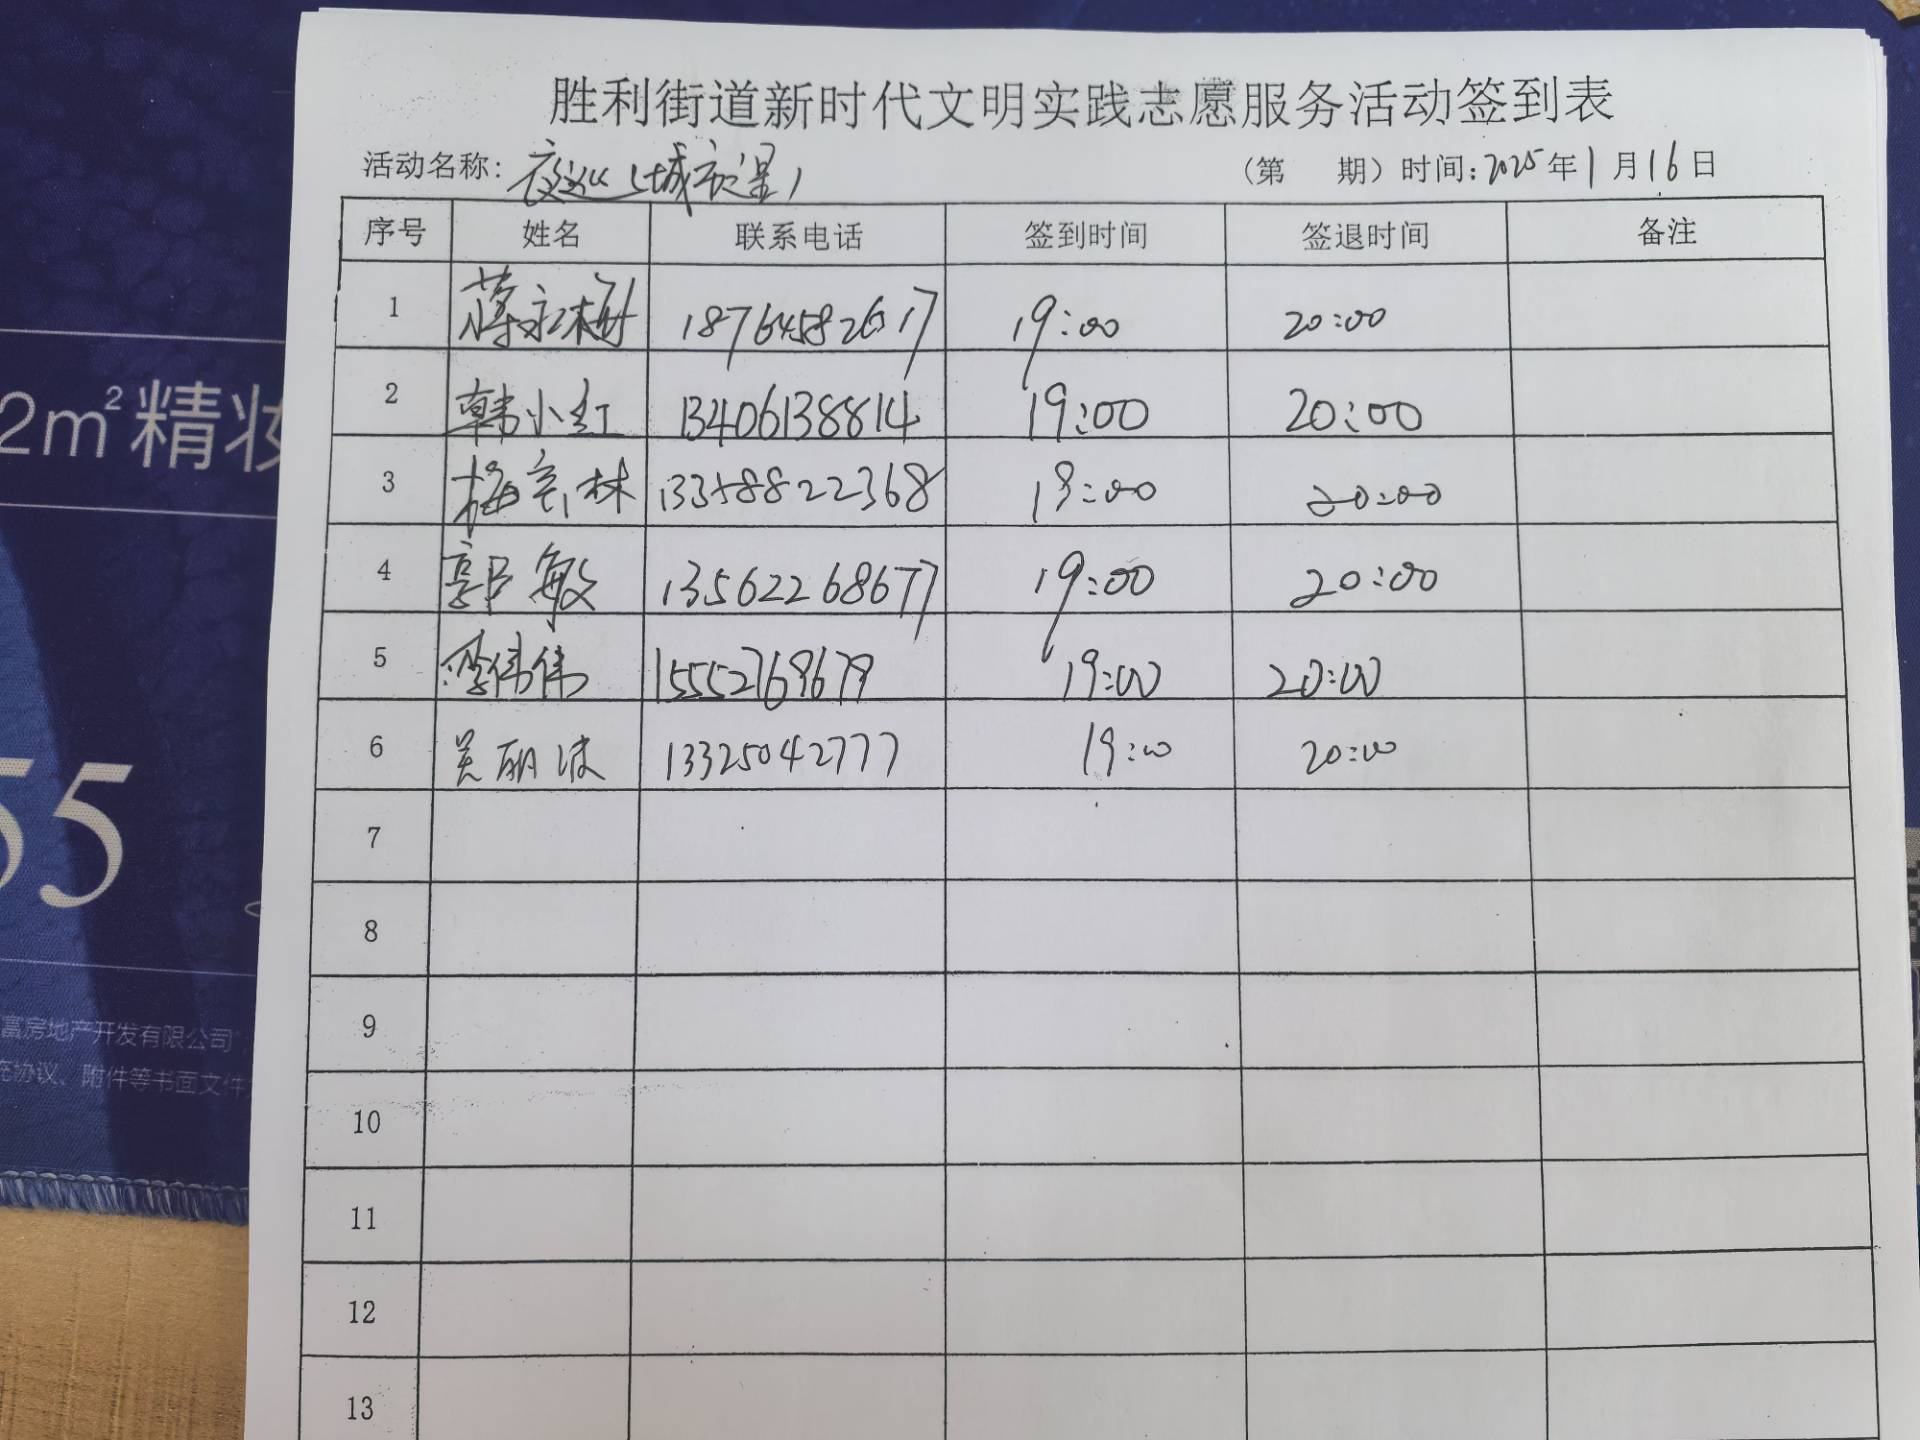 胜利街道新时代文明实践志愿服务活动签到表
活动名称: 夜巡 （第 期）时间: 2025年1月16日
序号 姓名 联系电话 签到时间 签退时间 备注
1 蒋永梅 18764582617 19:00 20:00
2 韩小红 13406138814 19:00 20:00
3 梅 林 13358822368 19:00 20:00
4 郭敏 13562268677 19:00 20:00
5 李伟伟 15552769679 19:00 20:00
6 吴丽波 13325042777 19:00 20:00
7
8
9
10
11
12
13
2m²精妆
55
富房地产开发有限公司
充协议、附件等书面文件